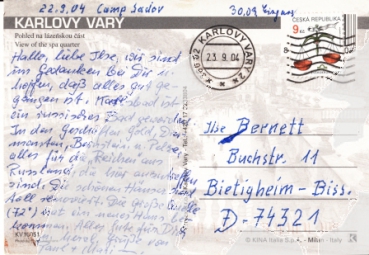 22.9.04 Camp Sadov
30.09 Eingang
KARLOVY VARY
Pohled na lázeňskou část
View of the spa quarter
Hallo, liebe Ilse, wir sind
in Gedanken bei Dir u.
hoffen, daß alles gut ge-
gangen ist. Karlsbad ist
ein russisches Bad geworden.
In den Geschäften Gold, Dia-
manten, Bernstein u. Pelze,
alles für die Reichen aus
Russland, die hier
sind. Die schönen Häuser sind
toll renoviert. Die große Quelle
(72°) hat ein neues Haus be-
kommen. Alles Liebe für Dich
KARLOVY VARY 2
23.9.04
ČESKÁ REPUBLIKA
9 Kč
Ilse Bernett
Buchstr. 11
Bietigheim-Biss.
D-74321
© KINA Italia S.p.A. - Milan - Italy